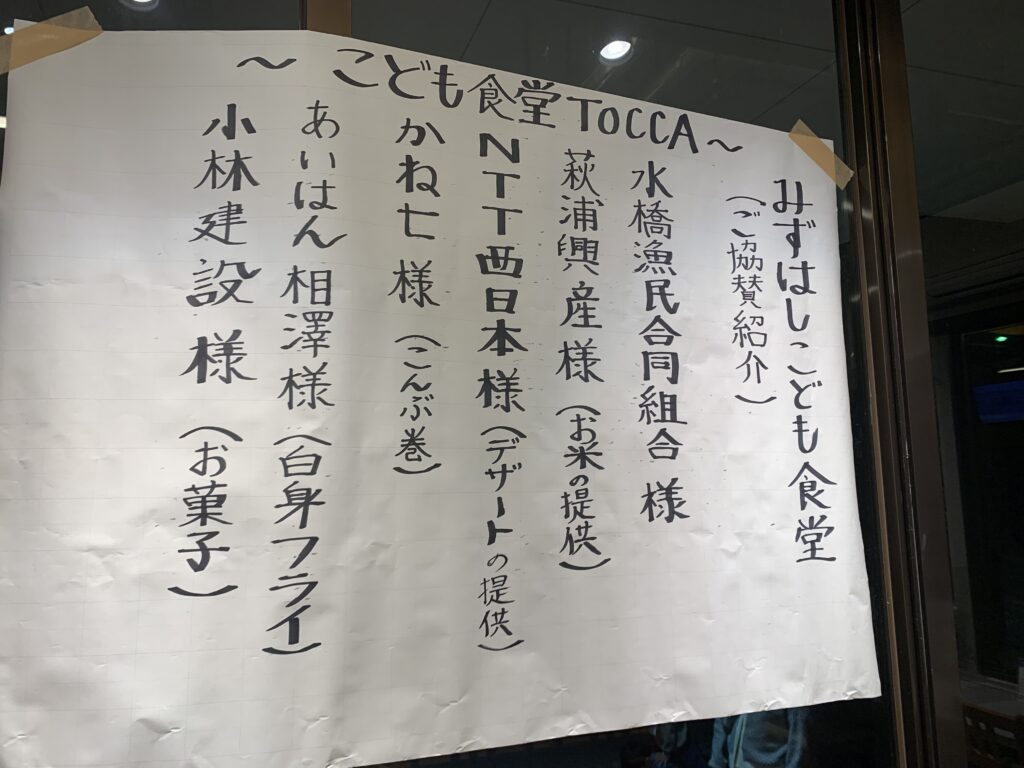 ～こども食堂TOCCA～
みずはしこども食堂
（ご協賛紹介）
水橋漁民合同組合様
萩浦興産様（お米の提供）
NTT西日本様（デザートの提供）
かね七様（こんぶ巻）
あいはん相澤様（白身フライ）
小林建設様（お菓子）